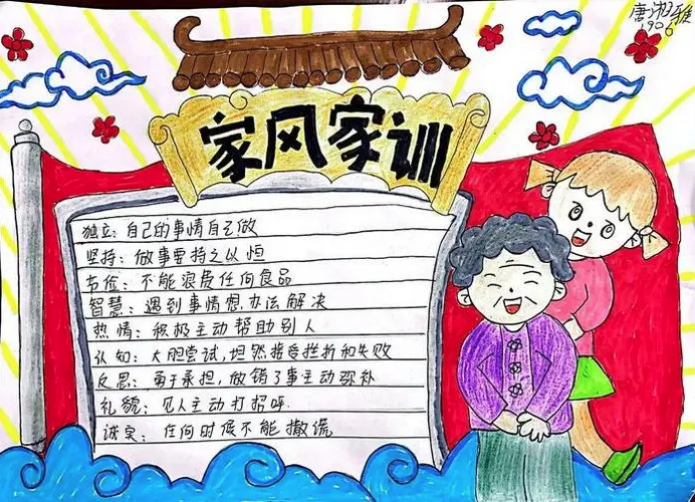 唐湘雅
1906
家风家训
独立：自己的事情自己做
坚持：做事要持之以恒
节俭：不能浪费任何食品
智慧：遇到事情想办法解决
热情：积极主动帮助别人
认知：大胆尝试，坦然接受挫折和失败
反思：勇于承担，做错了事主动弥补
礼貌：见人主动打招呼．
诚实：任何时候不能撒谎